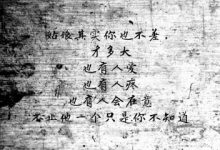 姑娘其实你也不差
才多大
也有人爱
也有人疼
也有人会在意
不止他一个只是你不知道